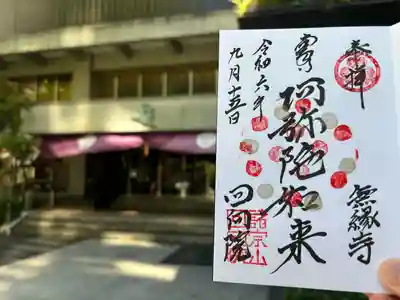 奉拝
無縁寺
東京
阿弥陀如来
回向院
令和六年
九月十五日
諸宗山